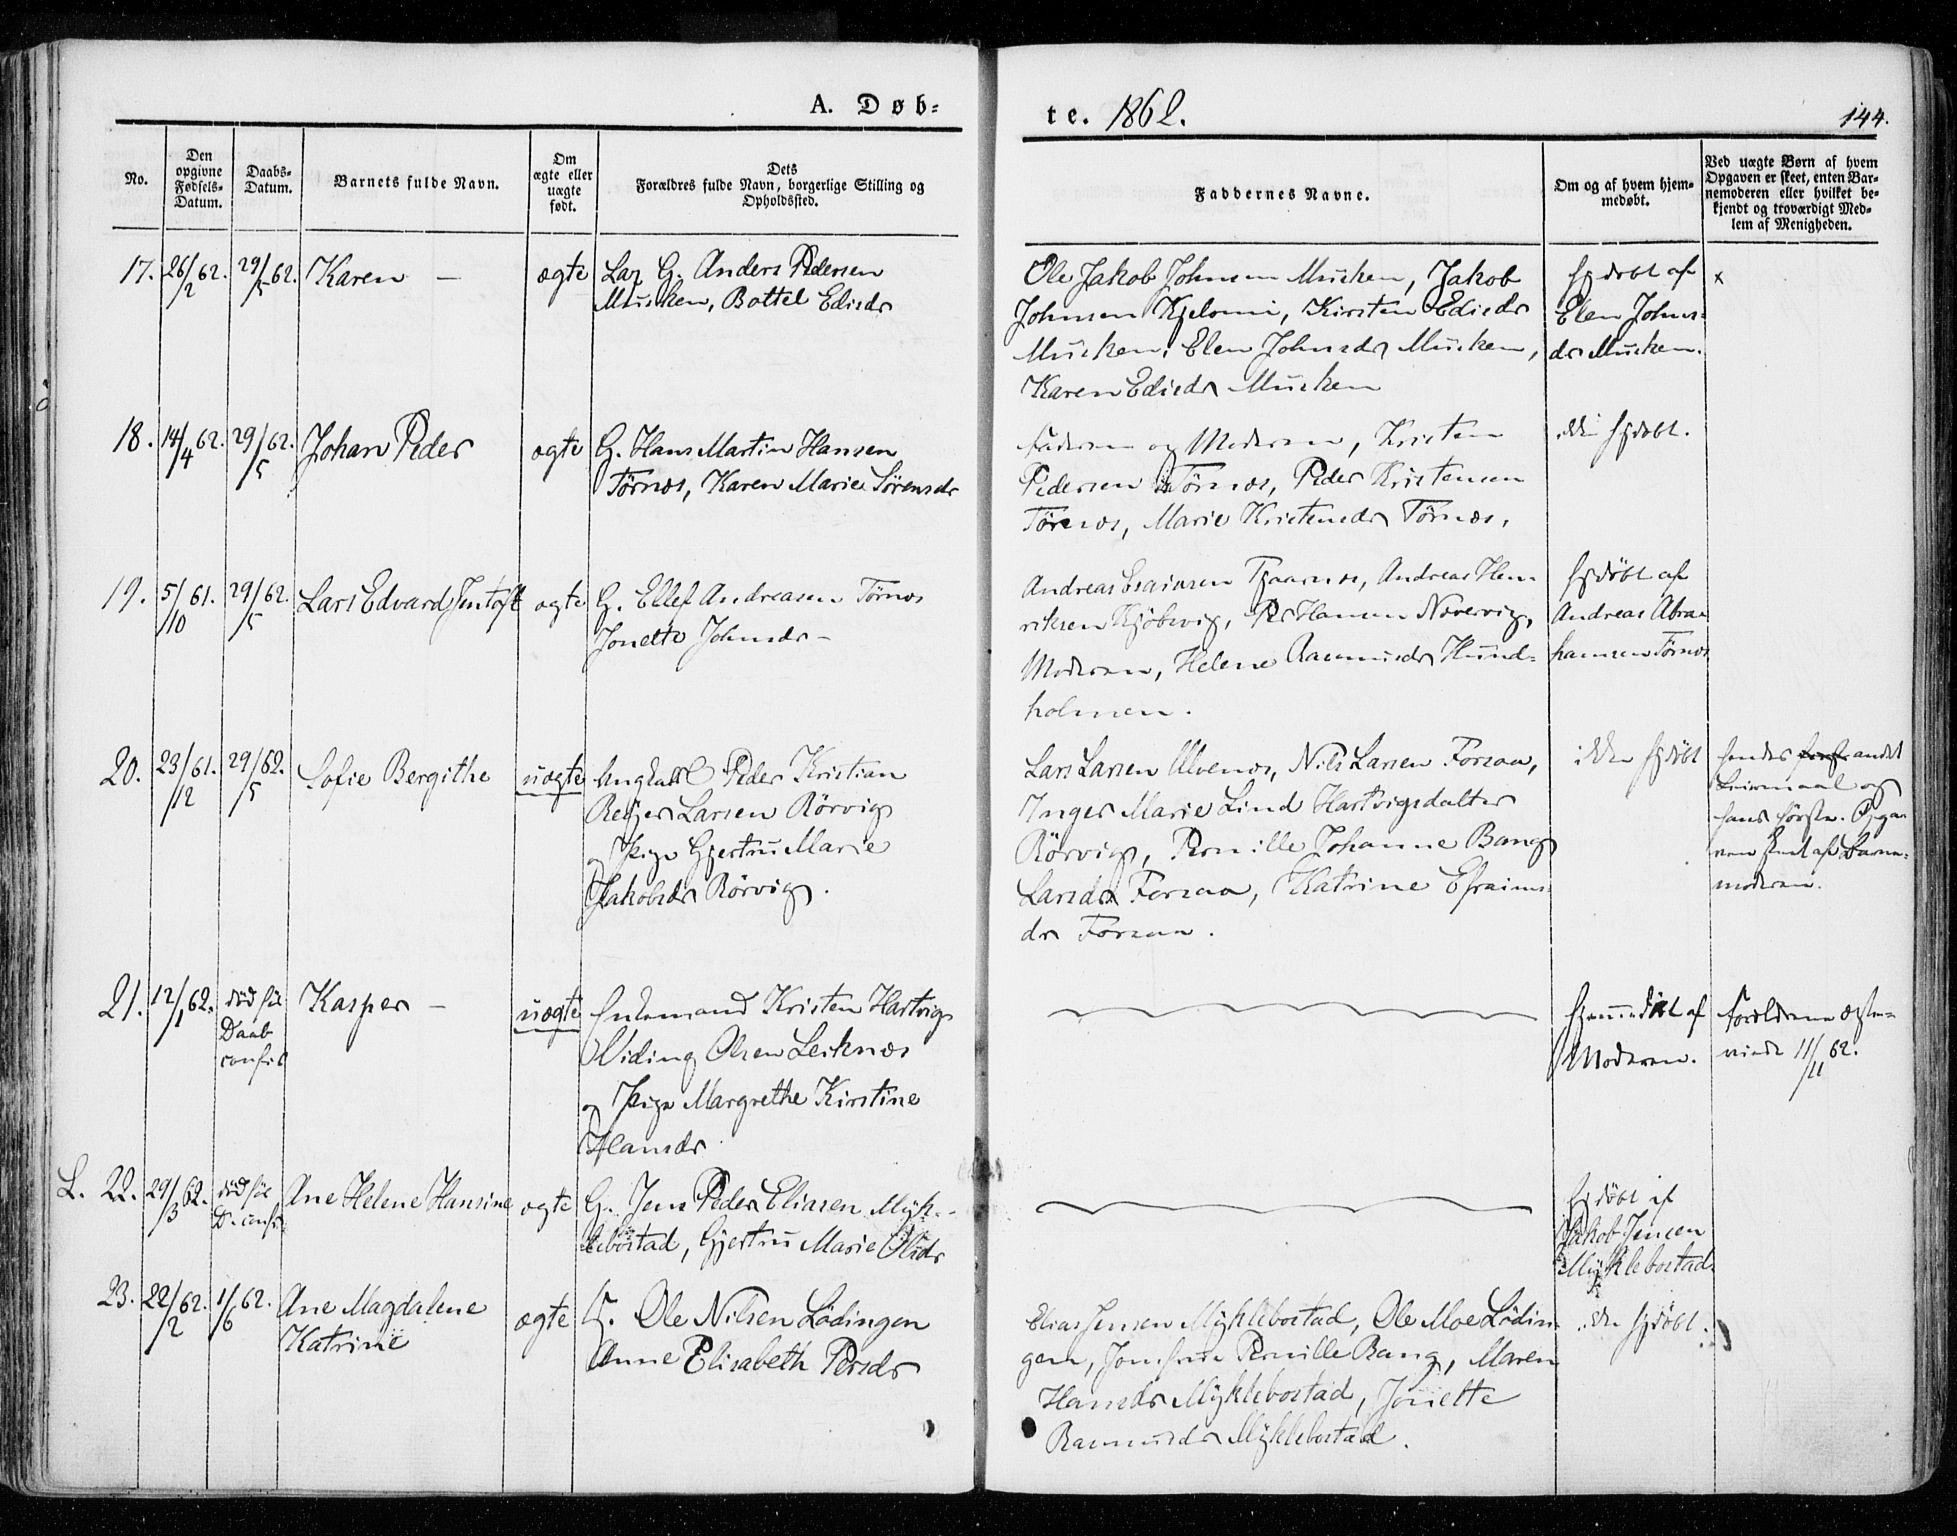 A. Døb-
te. 1862.
144.
No.
Den opgivne Fødsels-Datum.
Daabs-Datum.
Barnets fulde Navn.
Om ægte eller uægte født.
Dets Forældres fulde Navn, borgerlige Stilling og Opholdssted.
Faddernes Navne.
Om og af hvem hjem-medøbt.
Ved uægte Børn af hvem Opgaven er skeet, enten Bar-nemoderen eller hvilket be-kjendt og troværdigt Med-lem af Menigheden.
17. 26/2 62. 29/5 62. Karen – ægte
G. Anders Pedersen
Musken, Bottel Edisdr
Ole Jakob Johnsen Musken, Jakob
Johnsen Kjelomi, Kirsten Edisdr
Musken, Elen Johnsdr Musken,
Karen Edisdr Musken
hjdøbt af
Elen Johns-
dr Musken.
x
18. 14/4 62. 29/5 62. Johan Peder ægte
G. Hans Martin Hansen
Tørnæs, Karen Marie Sørensdr
Faderen og Moderen, Kristen
Pedersen Tørnæs, Peder Kristensen
Tørnæs, Marie Kristensdr Tørnæs.
ikke hjdøbt.
19. 5/10 61. 29/5 62. Lars Edvard Jentoft ægte
G. Ellef Andreasen Tørnæs
Jonette Johnsdr –
Andreas Esaiasen Tjaarnæs, Andreas Hen-
riksen Kjøbvig, Hansen Nævervig,
Moderen, Helene Rasmusdr Hund-
holmen.
hjdøbt af
Andreas Abra-
hamsen Tørnæs
20. 23/12 61. 29/5 62. Sofie Bergithe uægte
Ungkarl Peder Kristian
Reijer Larsen Rørvig
og Pige Gjertru Marie
Jakobsdr Rørvig.
Lars Larsen Ulvenæs, Nils Larsen Forsaa,
Inger Marie Lind Hartvigsdatter
Rørvig, Pernille Johanne Bang
Larsdr Forsaa, Katrine Efraims-
dr Forsaa.
ikke hjdøbt
hendes andet
Leiermaal og
hans første. Opga-
ven skeet af Barne-
moderen.
21. 12/1 62. død før
Daab
confir
Kasper – uægte
Enkemand Kristen Hartvig
Widing Olsen Leiknæs
og Pige Margrethe Kirstine
Hansdr
Hjemmedøbt af
Moderen.
Forældrene ægte-
viede 11/11 62.
L. 22. 29/3 62. død før
D. conf.
Ane Helene Hansine ægte
G. Jens Peder Eliasen Myk-
lebostad, Gjertru Marie Olsdr
hjdøbt af
Jakob Jensen
Myklebostad
23. 22/2 62. 1/6 62. Ane Magdalene
Katrine
ægte
G. Ole Nilsen Lødingen
Anne Elisabeth Persdr
Elias Jensen Myklebostad, Ole Moe Lødin-
gen, Jomfrue Pernille Bang, Maren
Hansdr Myklebostad, Jonette
Rasmusdr Myklebostad.
ikke hjdøbt.